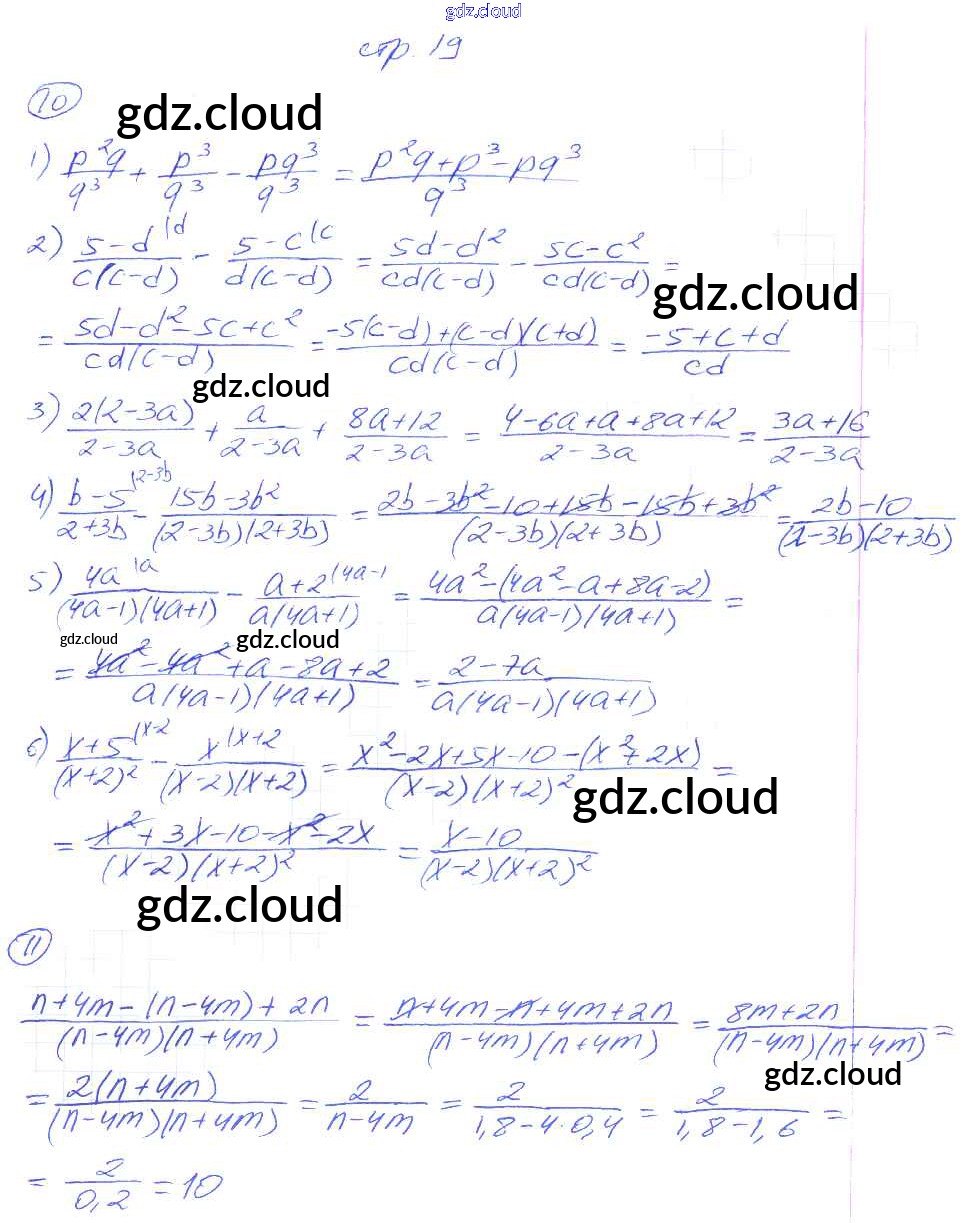 gdz.cloud
стр. 19
10
gdz.cloud
1) p²q/q³ + p³/q³ - pq³/q³ = (p²q+p³-pq³)/q³
2) (5-d)/(c(c-d)) |d - (5-c)/(d(c-d)) |c = (5d-d²)/(cd(c-d)) - (5c-c²)/(cd(c-d)) =
gdz.cloud
= (5d-d²-5c+c²)/(cd(c-d)) = (-5(c-d)+(c-d)(c+d))/(cd(c-d)) = (-5+c+d)/(cd)
gdz.cloud
3) 2(2-3a)/(2-3a) + a/(2-3a) + (8a+12)/(2-3a) = (4-6a+a+8a+12)/(2-3a) = (3a+16)/(2-3a)
4) (b-5)/(2+3b) |2-3b - (15b-3b²)/((2-3b)(2+3b)) = (2b-3b²-10+15b-15b+3b²)/((2-3b)(2+3b)) = (2b-10)/((2-3b)(2+3b))
5) 4a/((4a-1)(4a+1)) |a - (a+2)/(a(4a+1)) |4a-1 = (4a²-(4a²-a+8a-2))/(a(4a-1)(4a+1)) =
gdz.cloud gdz.cloud
= (4a²-4a²+a-8a+2)/(a(4a-1)(4a+1)) = (2-7a)/(a(4a-1)(4a+1))
6) (x+5)/((x+2)²) |x-2 - x/((x-2)(x+2)) |x+2 = (x²-2x+5x-10-(x²+2x))/((x-2)(x+2)²) =
gdz.cloud
= (x²+3x-10-x²-2x)/((x-2)(x+2)²) = (x-10)/((x-2)(x+2)²)
gdz.cloud
11
(n+4m-(n-4m)+2n)/((n-4m)(n+4m)) = (n+4m-n+4m+2n)/((n-4m)(n+4m)) = (8m+2n)/((n-4m)(n+4m)) =
gdz.cloud
= 2(n+4m)/((n-4m)(n+4m)) = 2/(n-4m) = 2/(1,8-4·0,4) = 2/(1,8-1,6) =
= 2/0,2 = 10